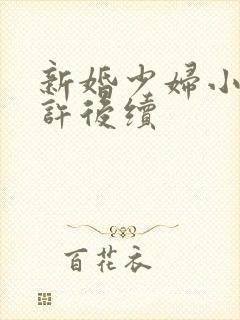 新婚少婦小
許後續
百花衣